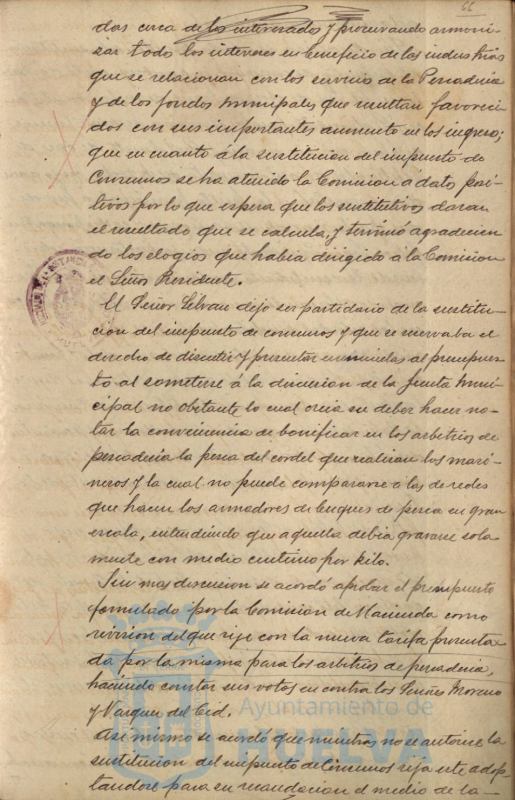 66
dos cerca de los interesados y procurando armoni-
zar todo los intereses en beneficio de las industrias
que se relacionan con los servicio de la Pescadería
y de los fondos municipales que resultan favoreci
dos con sus importantes aumento en los ingreso;
que en cuanto á la sustitucion del impuesto de
Consumos se ha atenido la Comision a datos posi-
tivos por lo que espera que los sustitutivos daran
el resultado que se calcula, y terminó agradecien
do los elogios que habia dirigido á la Comision
el Señor Presidente.
El Señor Selvan dejo ser partidario de la sustitu-
cion del impuesto de consumos y que se reservaba el
derecho de discutir y presentar enmiendas al presupues-
to al someterse á la discusion de la Junta Muni-
cipal no obstante lo cual creia su deber hacer no-
tar la conveniencia de bonificar en los arbitrios de
pescaderia la pesca del cordel que realizan los mari-
neros y la cual no puede compararse a las de redes
que hacen los armadores de buques de pesca en gran
escala, entendiendo que aquella debia gravarse sola
mente con medio centimo por kilo.
Sin mas discusion se acordó aprobar el presupuesto
formulado por la Comision de Hacienda como
revision del que rije con la nueva tarifa presenta-
da por la misma para los arbitrios de pescaderia,
haciendo constar sus votos en contra los Señores Moreno
y Vazquez del Cid.
Asi mismo se acordó que mientras no se autorice la
sustitucion del impuesto de Consumos rija este adop-
tandose para su recaudacion el medio de la
Ayuntamiento de
HUELVA